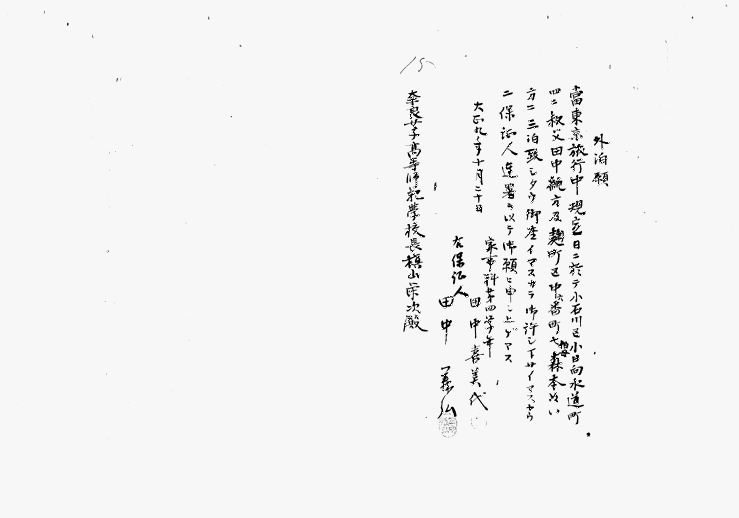 15
外泊願
當東京旅行中規定日ニ於テ小石川区小日向水道町
四二叔父田中 方及麹町区中六番町七 伯母 森本ぬい
方ニ三泊致シタウ御座イマスカラ御許シ下サイマスヤウ
二保証人連署ヲ以テ御願ヒ申シ上ゲマス
大正九年十月二十日
家事科第四学年
田中喜美代
右保証人
田中 義弘
奈良女子高等師範學校長槇山栄次殿